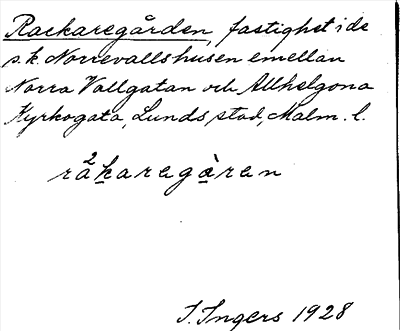 Rackaregården, fastighet i de
s.k. Norrevallshusen emellan
Norra Vallgatan och Allhelgona
Kyrkogata, Lunds stad, Malm. l.
rå²karegàren
I. Ingers 1928